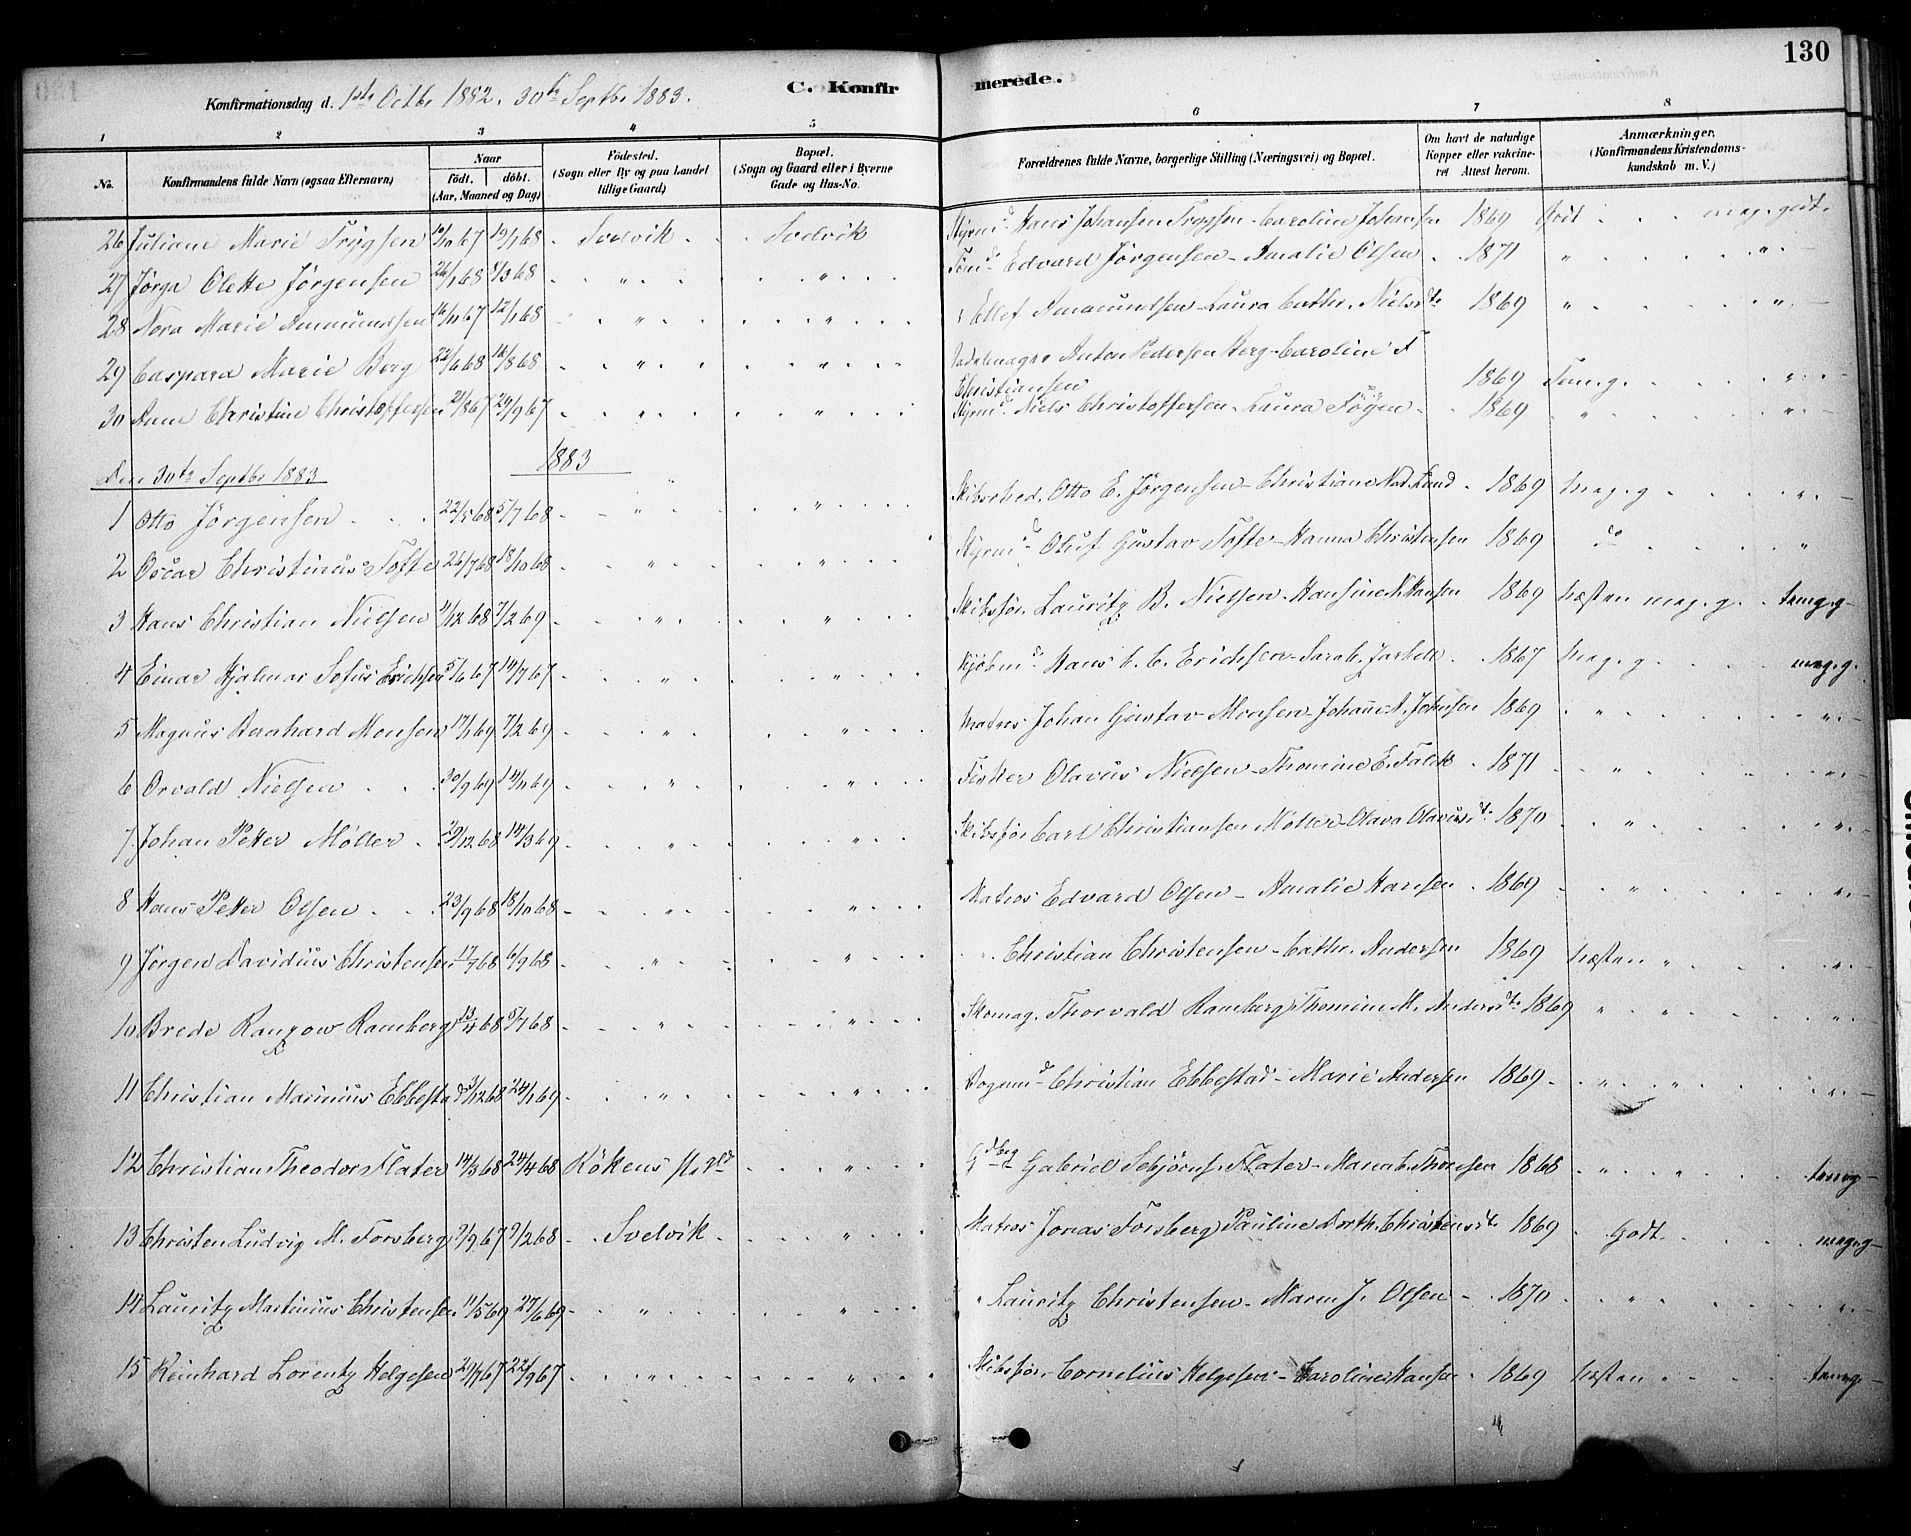 130
Konfirmationsdag d. 1ste Octbr 1882. 30te Septbr 1883.
C. Konfirmerede.
1 2 3 4 5 6 7 8
No.
Konfirmandens fulde Navn (ogsaa Efternavn)
Naar
Födt. döbt.
(Aar, Maaned og Dag)
Födested.
(Sogn eller By og paa Landet tillige Gaard)
Bopæl.
(Sogn og Gaard eller i Byerne Gade og Hus-No.
Forældrenes fulde Navne, borgerlige Stilling (Næringsvei) og Bopæl.
Om havt de naturlige Kopper eller vakcineret Attest herom.
Anmærkninger.
(Konfirmandens Kristendomskundskab m. V.)
26 Juliane Marie Trygsen 10/10 67 19/1 68 Svelvik Svelvik Styrmd Hans Johansen Trygsen - Caroline Johansen 1869 Godt meg. godt.
27 Jørga Olette Jörgensen 26/1 68 8/3 68 " " Edvard Jörgensen - Amalie Olsen 1871 " "
28 Nora Marie Amundsen 16/11 67 12/1 68 " " Ellef Amundsen - Laura Cathr. Nielsdtr 1869 " "
29 Caspara Marie Berg 22/6 68 16/8 68 " " Anton Pedersen Berg - Caroline F Christiansen 1869 Tem. g. "
30 Anne Christine Christoffersen 2/8 67 29/9 67 " " Styrmd Niels Christoffersen - Laura Föyen 1869 " "
Den 30te Septbr 1883 1883
1 Otto Jörgensen 22/5 68 5/7 68 " " Skibsred. Otto E. Jörgensen - Christiane Nat. Lund 1869 Meg. g "
2 Oscar Christinus Tofte 26/7 68 18/10 68 " " Styrmd Oluf Gustav Tofte - Hanna Christensen 1869 do "
3 Hans Christian Nielsen 9/12 68 7/2 69 " " Skibsför. Lauritz B. Nielsen - Hansine N. Hansen 1869 Næsten meg. g. temg. g
4 Einar Hjalmar Sofus Erichsen 5/6 67 14/7 67 " " Kjöbmd Hans C. C. Erichsen - Sarah. 1867 Meg. g meg. g.
5 Magnus Bernhard Monsen 17/1 69 7/2 69 " " Matros Johan Gustav Monsen - Johanne A. Johnsen 1869 " "
6 Orvald Nielsen 30/9 69 14/11 69 " " Fisker Olavus Nielsen - Thomine E. Falck 1871 " "
7 Johan Petter Möller 29/12 68 14/3 69 " " Skibsför Carl Christiansen Möller - Olava Olavusdtr 1870 " "
8 Hans Petter Olsen 23/9 68 18/10 68 " " Matros Edvard Olsen - Amalie Hansen 1869 " "
9 Jörgen Davidius Christensen 17/7 68 6/9 68 " " " Christian Christensen - Cathr. Andersen 1869 Næsten " "
10 Brede Ranzow Ramberg 13/4 68 5/7 68 " " Skomag. Thorvald Ramberg Thomine M. Andersdtr 1869 " "
11 Christian Marinius Ebbestad 3/12 68 24/1 69 " " Vognmd Christian Ebbestad - Marie Andersen 1869 " " "
12 Christian Theodor Flater 14/3 68 24/4 68 Rökens Prgld " Gdbrg Gabriel Flater - Maria C. Thoresen 1868 " " temg
13 Christen Ludvig M. Forsberg 2/9 67 2/2 68 Svelvik " Matros Jonas Forsberg Pauline Dorth. Christensdtr 1869 Godt meg. g
14 Lauritz Martinius Christensen 11/5 69 27/6 69 " " " Lauritz Christensen - Maren J. Olsen 1870 " "
15 Reinhard Lorentz Helgesen 29/7 67 22/9 67 " " Skibsför. Cornelius Helgesen - Caroline Hansen 1869 Næsten " temg